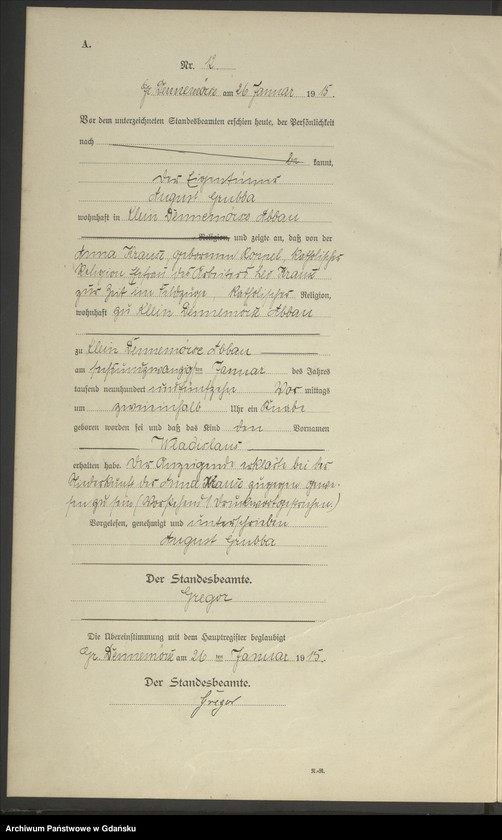 A.
Nr. 12
Gr. Dennemörse am 26 Januar 1915.
Vor dem unterzeichneten Standesbeamten erschien heute, der Persönlichkeit
nach
be kannt,
der Eigentümer
August Grubba
wohnhaft in Klein Dennemörse Abbau
Religion, und zeigte an, daß von der
Anna Kranz, geborenen Kornel, katholischer
Religion, Ehefrau des Arbeiters Leo Kranz
zur Zeit im Feldzuge, katholischer Religion,
wohnhaft zu Klein Dennemörse Abbau
zu Klein Dennemörse Abbau
am sechsundzwanzigsten Januar des Jahres
tausend neunhundert und fünfzehn Vor mittags
um zweieinhalb Uhr ein Knabe
geboren worden sei und daß das Kind den Vornamen
Wladislaus
erhalten habe. Der Anzeigende erklärte bei der
Niederkunft der Anna Kranz zugegen gewe-
sen zu sein (Vorstehend Druckwort gestrichen)
Vorgelesen, genehmigt und unterschrieben
August Grubba
Der Standesbeamte.
Gregor
Die Übereinstimmung mit dem Hauptregister beglaubigt
Gr. Dennemörse am 26 ten Januar 1915.
Der Standesbeamte.
Gregor
K.-R.
Archiwum Państwowe w Gdańsku